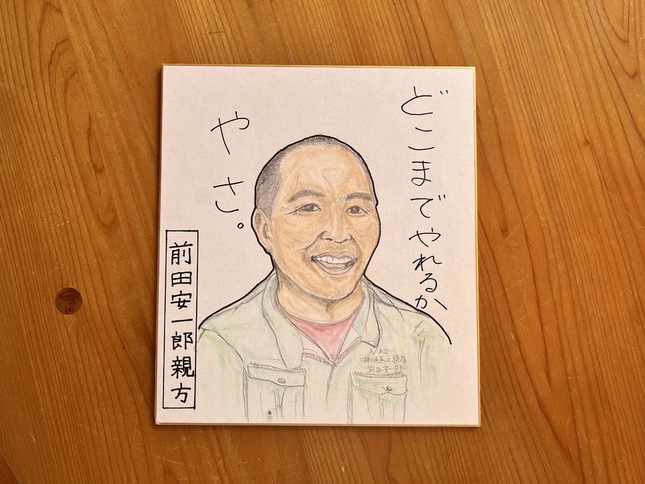 どこまでやれるか
やさ。
前田安一郎親方